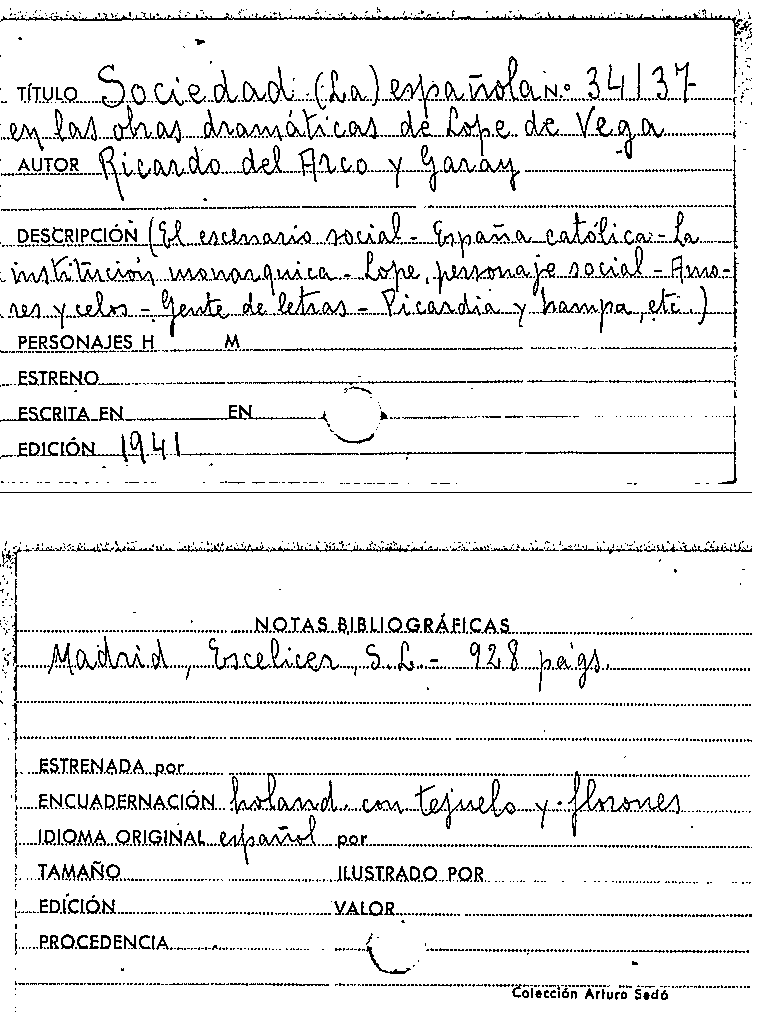 TÍTULO Sociedad (La) española N.º 34137
en las obras dramáticas de Lope de Vega
AUTOR Ricardo del Arco y Garay
DESCRIPCIÓN (El escenario social - España católica - La
institución monarquica - Lope, personaje social - Amo-
res y celos - Gente de letras - Picardia y hampa, etc.)
PERSONAJES H M
ESTRENO
ESCRITA EN EN
EDICIÓN 1941
NOTAS BIBLIOGRÁFICAS
Madrid, Escelicer, S.L. - 928 págs.
ESTRENADA por
ENCUADERNACIÓN holand. con tejuelo y florones
IDIOMA ORIGINAL español por
TAMAÑO ILUSTRADO POR
EDICIÓN VALOR
PROCEDENCIA
Colección Arturo Sedó